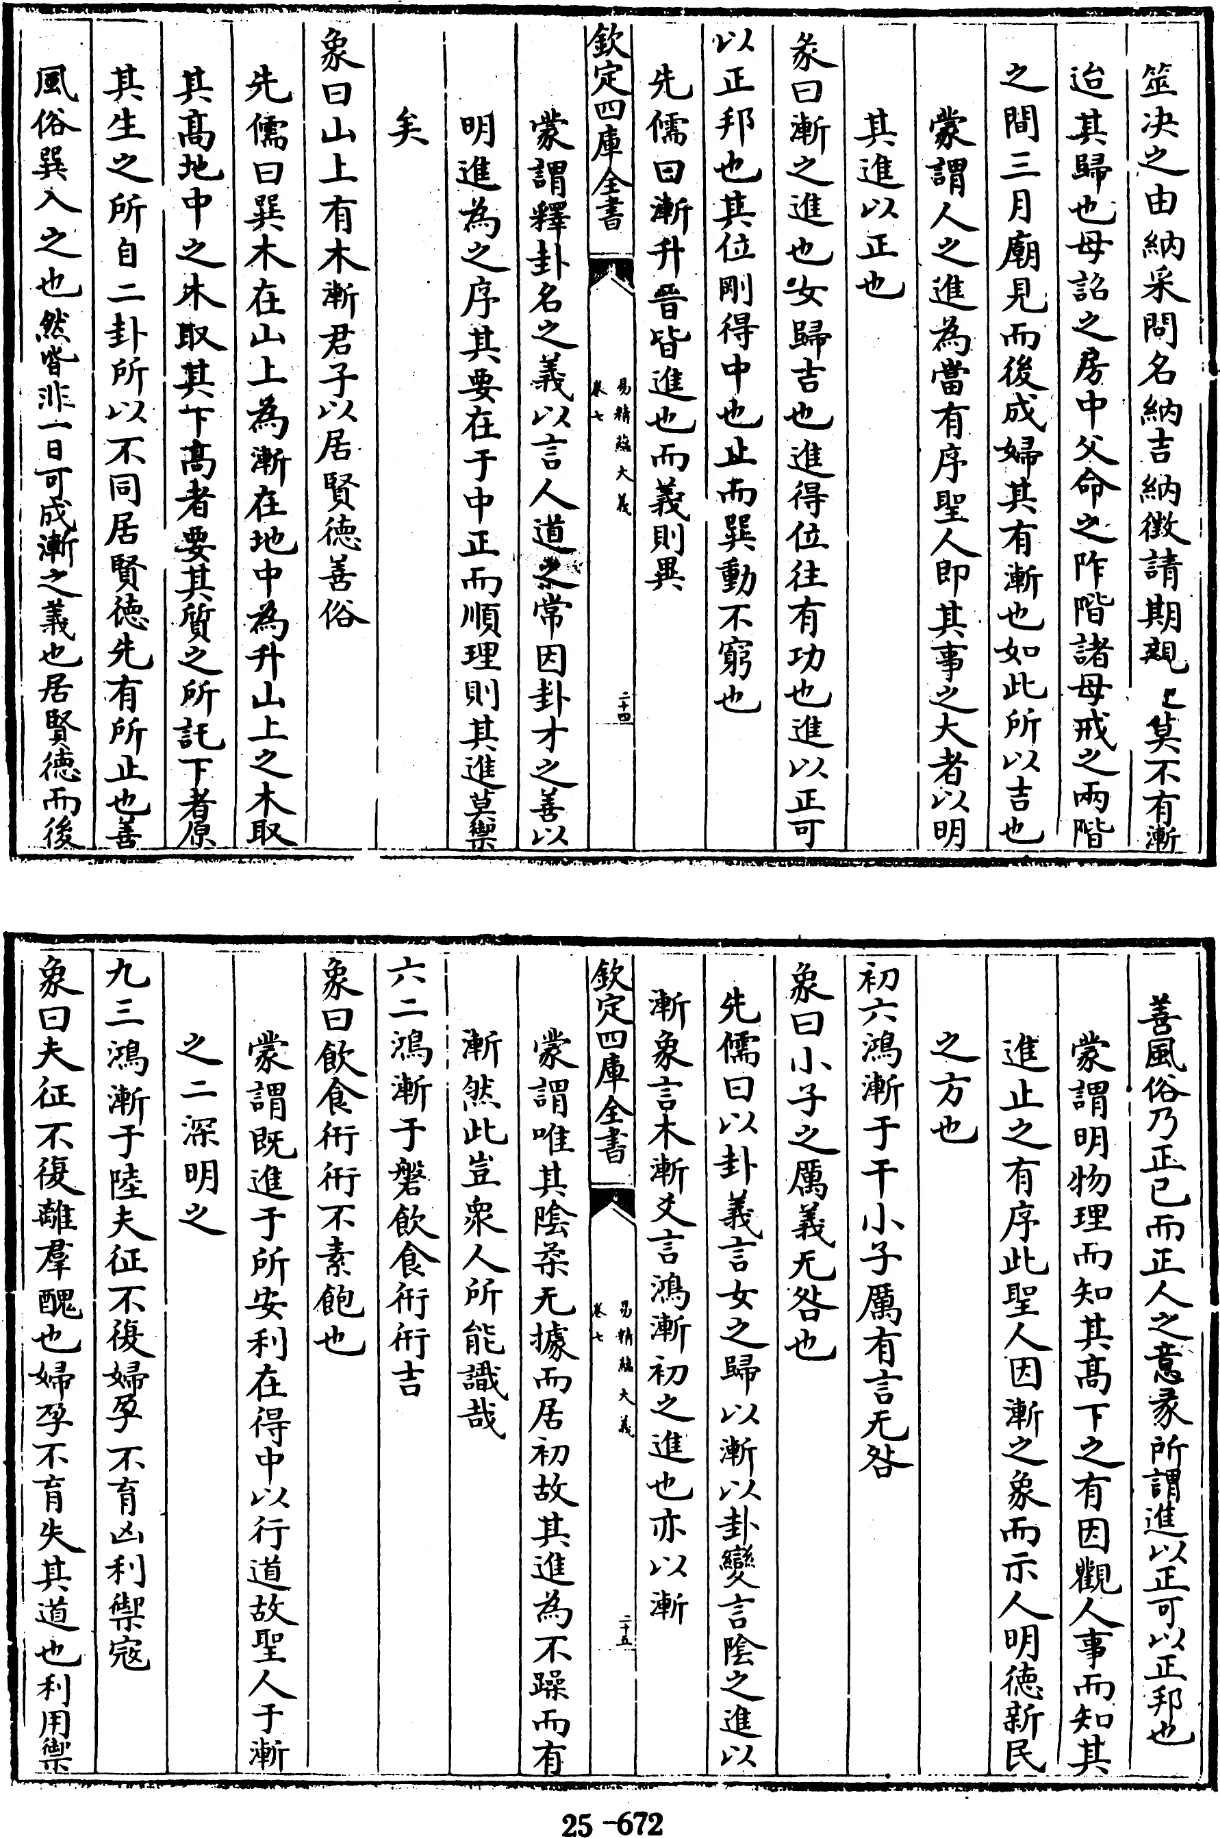 筮决之由納采問名納吉納徵請期親迎莫不有漸
迨其歸也母詔之房中父命之阼階諸母戒之兩階
之間三月廟見而後成婦其有漸也如此所以吉也
蒙謂人之進為當有序聖人即其事之大者以明
其進以正也
彖曰漸之進也女歸吉也進得位往有功也進以正可
以正邦也其位剛得中也止而巽動不窮也
先儒曰漸升晉皆進也而義則異
欽定四庫全書
易精蘊大義
卷七
二十四
蒙謂釋卦名之義以言人道之常因卦才之善以
明進為之序其要在于中正而順理則其進莫禦
矣
象曰山上有木漸君子以居賢德善俗
先儒曰巽木在山上為漸在地中為升山上之木取
其高地中之木取其下高者要其質之所託下者原
其生之所自二卦所以不同居賢德先有所止也善
風俗巽入之也然皆非一日可成漸之義也居賢德而後
善風俗乃正已而正人之意彖所謂進以正可以正邦也
蒙謂明物理而知其高下之有因觀人事而知其
進止之有序此聖人因漸之象而示人明德新民
之方也
初六鴻漸于干小子厲有言无咎
象曰小子之厲義无咎也
先儒曰以卦義言女之歸以漸以卦變言陰之進以
漸象言木漸爻言鴻漸初之進也亦以漸
欽定四庫全書
易精蘊大義
卷七
二十五
蒙謂唯其陰柔无據而居初故其進為不躁而有
漸然此豈衆人所能識哉
六二鴻漸于磐飲食衎衎吉
象曰飲食衎衎不素飽也
蒙謂既進于所安利在得中以行道故聖人于漸
之二深明之
九三鴻漸于陸夫征不復婦孕不育凶利禦寇
象曰夫征不復離羣醜也婦孕不育失其道也利用禦
25-672